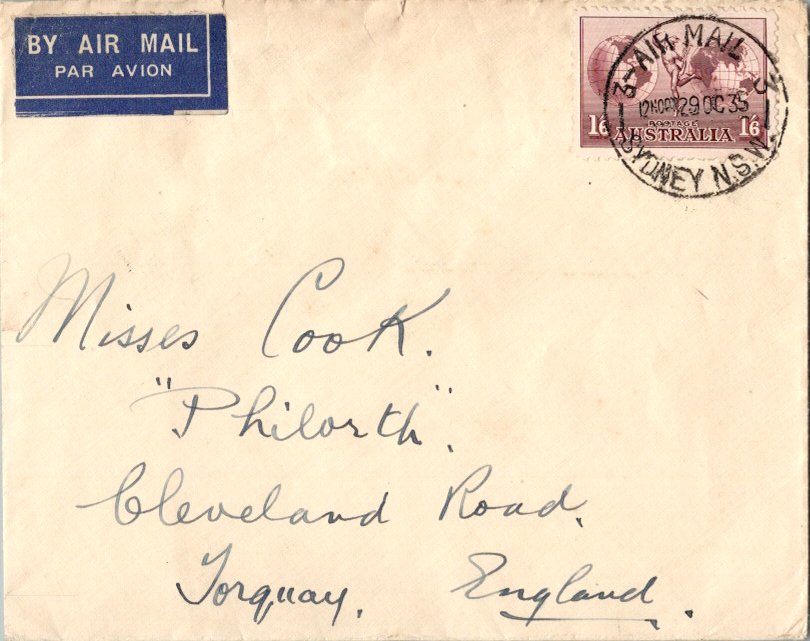 BY AIR MAIL
PAR AVION
3-AIR MAIL 3
12NOON 29 OC 35
SYDNEY N.S.W.
POSTAGE
1/6 AUSTRALIA 1/6
Misses Cook.
"Philorth".
Cleveland Road.
Torquay. England.